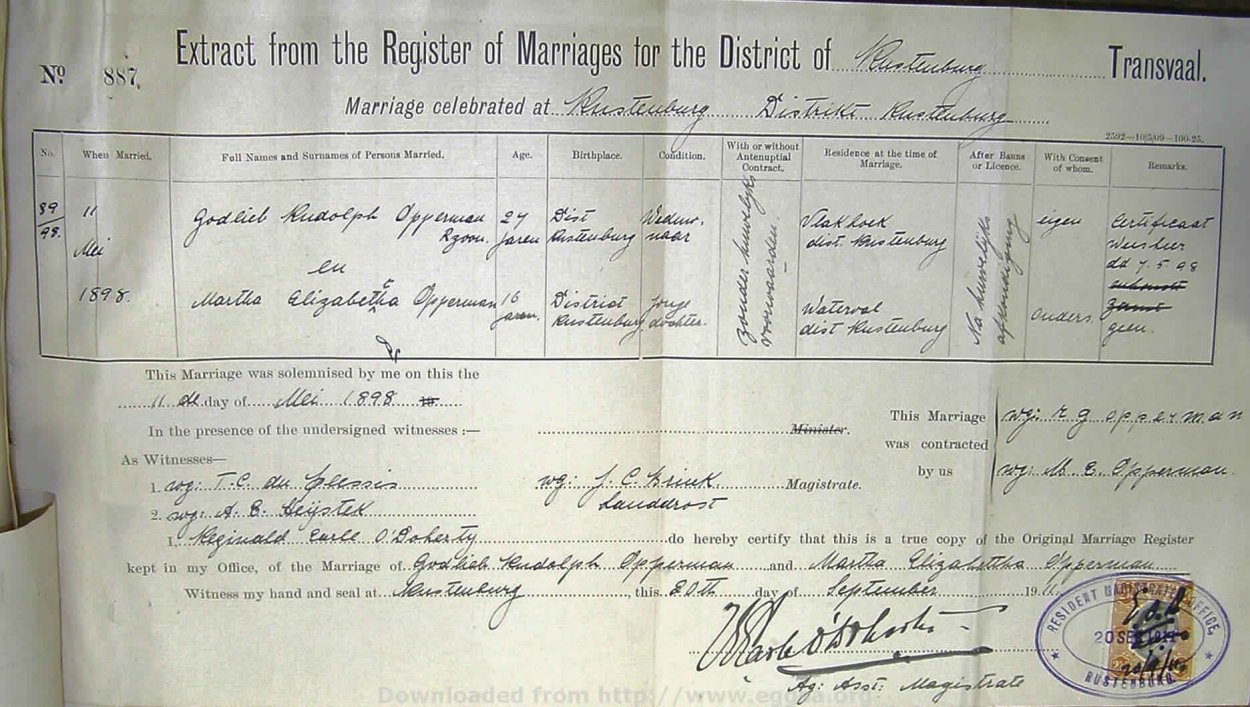 Extract from the Register of Marriages for the District of Rustenburg Transvaal.
No 887.
Marriage celebrated at Rustenburg Distrikt Rustenburg
2592—10/5/09—100-25.
No. When Married. Full Names and Surnames of Persons Married. Age. Birthplace. Condition. With or without Antenuptial Contract. Residence at the time of Marriage. After Banns or Licence. With Consent of whom. Remarks.
89/98. 11 Mei 1898.
Godlieb Rudolph Opperman Rzoon. 27 jaren Dist Rustenburg Weduwnaar Vlakhoek dist. Rustenburg eigen Certificaat Weesheer dd 7.5.98
en
Martha Elizabetha Opperman 16 jaren. District Rustenburg Jonge dochter. Waterval dist Rustenburg ouders. geen.
zonder huwelijks voorwaarden.
Na huwelijks afkondiging
This Marriage was solemnised by me on this the
11 de day of Mei 1898 19
In the presence of the undersigned witnesses :—
Minister.
This Marriage was contracted by us
wg: R G Opperman
wg: M. E. Opperman.
As Witnesses—
1. wg: T. C. du Plessis
wg: J. C. Brink. Magistrate.
Landdrost
2. wg: A. E. Heystek
I. Reginald Earle O'Doherty do hereby certify that this is a true copy of the Original Marriage Register
kept in my Office, of the Marriage of Godlieb Rudolph Opperman and Martha Elizabettha Opperman
Witness my hand and seal at Rustenburg, this 20th day of September 1911.
Ag: Asst: Magistrate
RESIDENT MAGISTRATE'S OFFICE,
20 SEP 1911
RUSTENBURG
Downloaded from http://www.eggsa.org